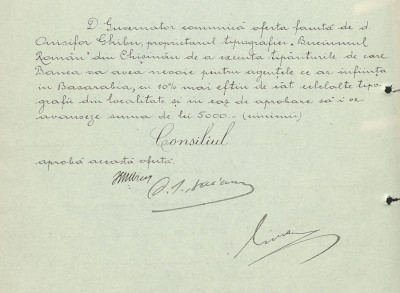 D. Guvernator comunică oferta făcută de d.
Onisifor Ghibu, proprietarul tipografiei „Buciumul
Român" din Chișinău de a executa tipăriturile de care
Banca va avea nevoie pentru agențiile ce ar înființa
în Basarabia, cu 10% mai eftin de cât celelalte tipo-
grafii din localitate și în caz de aprobare să i se
avanseze suma de lei 5000.- (cincimii)
Consiliul
aprobă această ofertă.